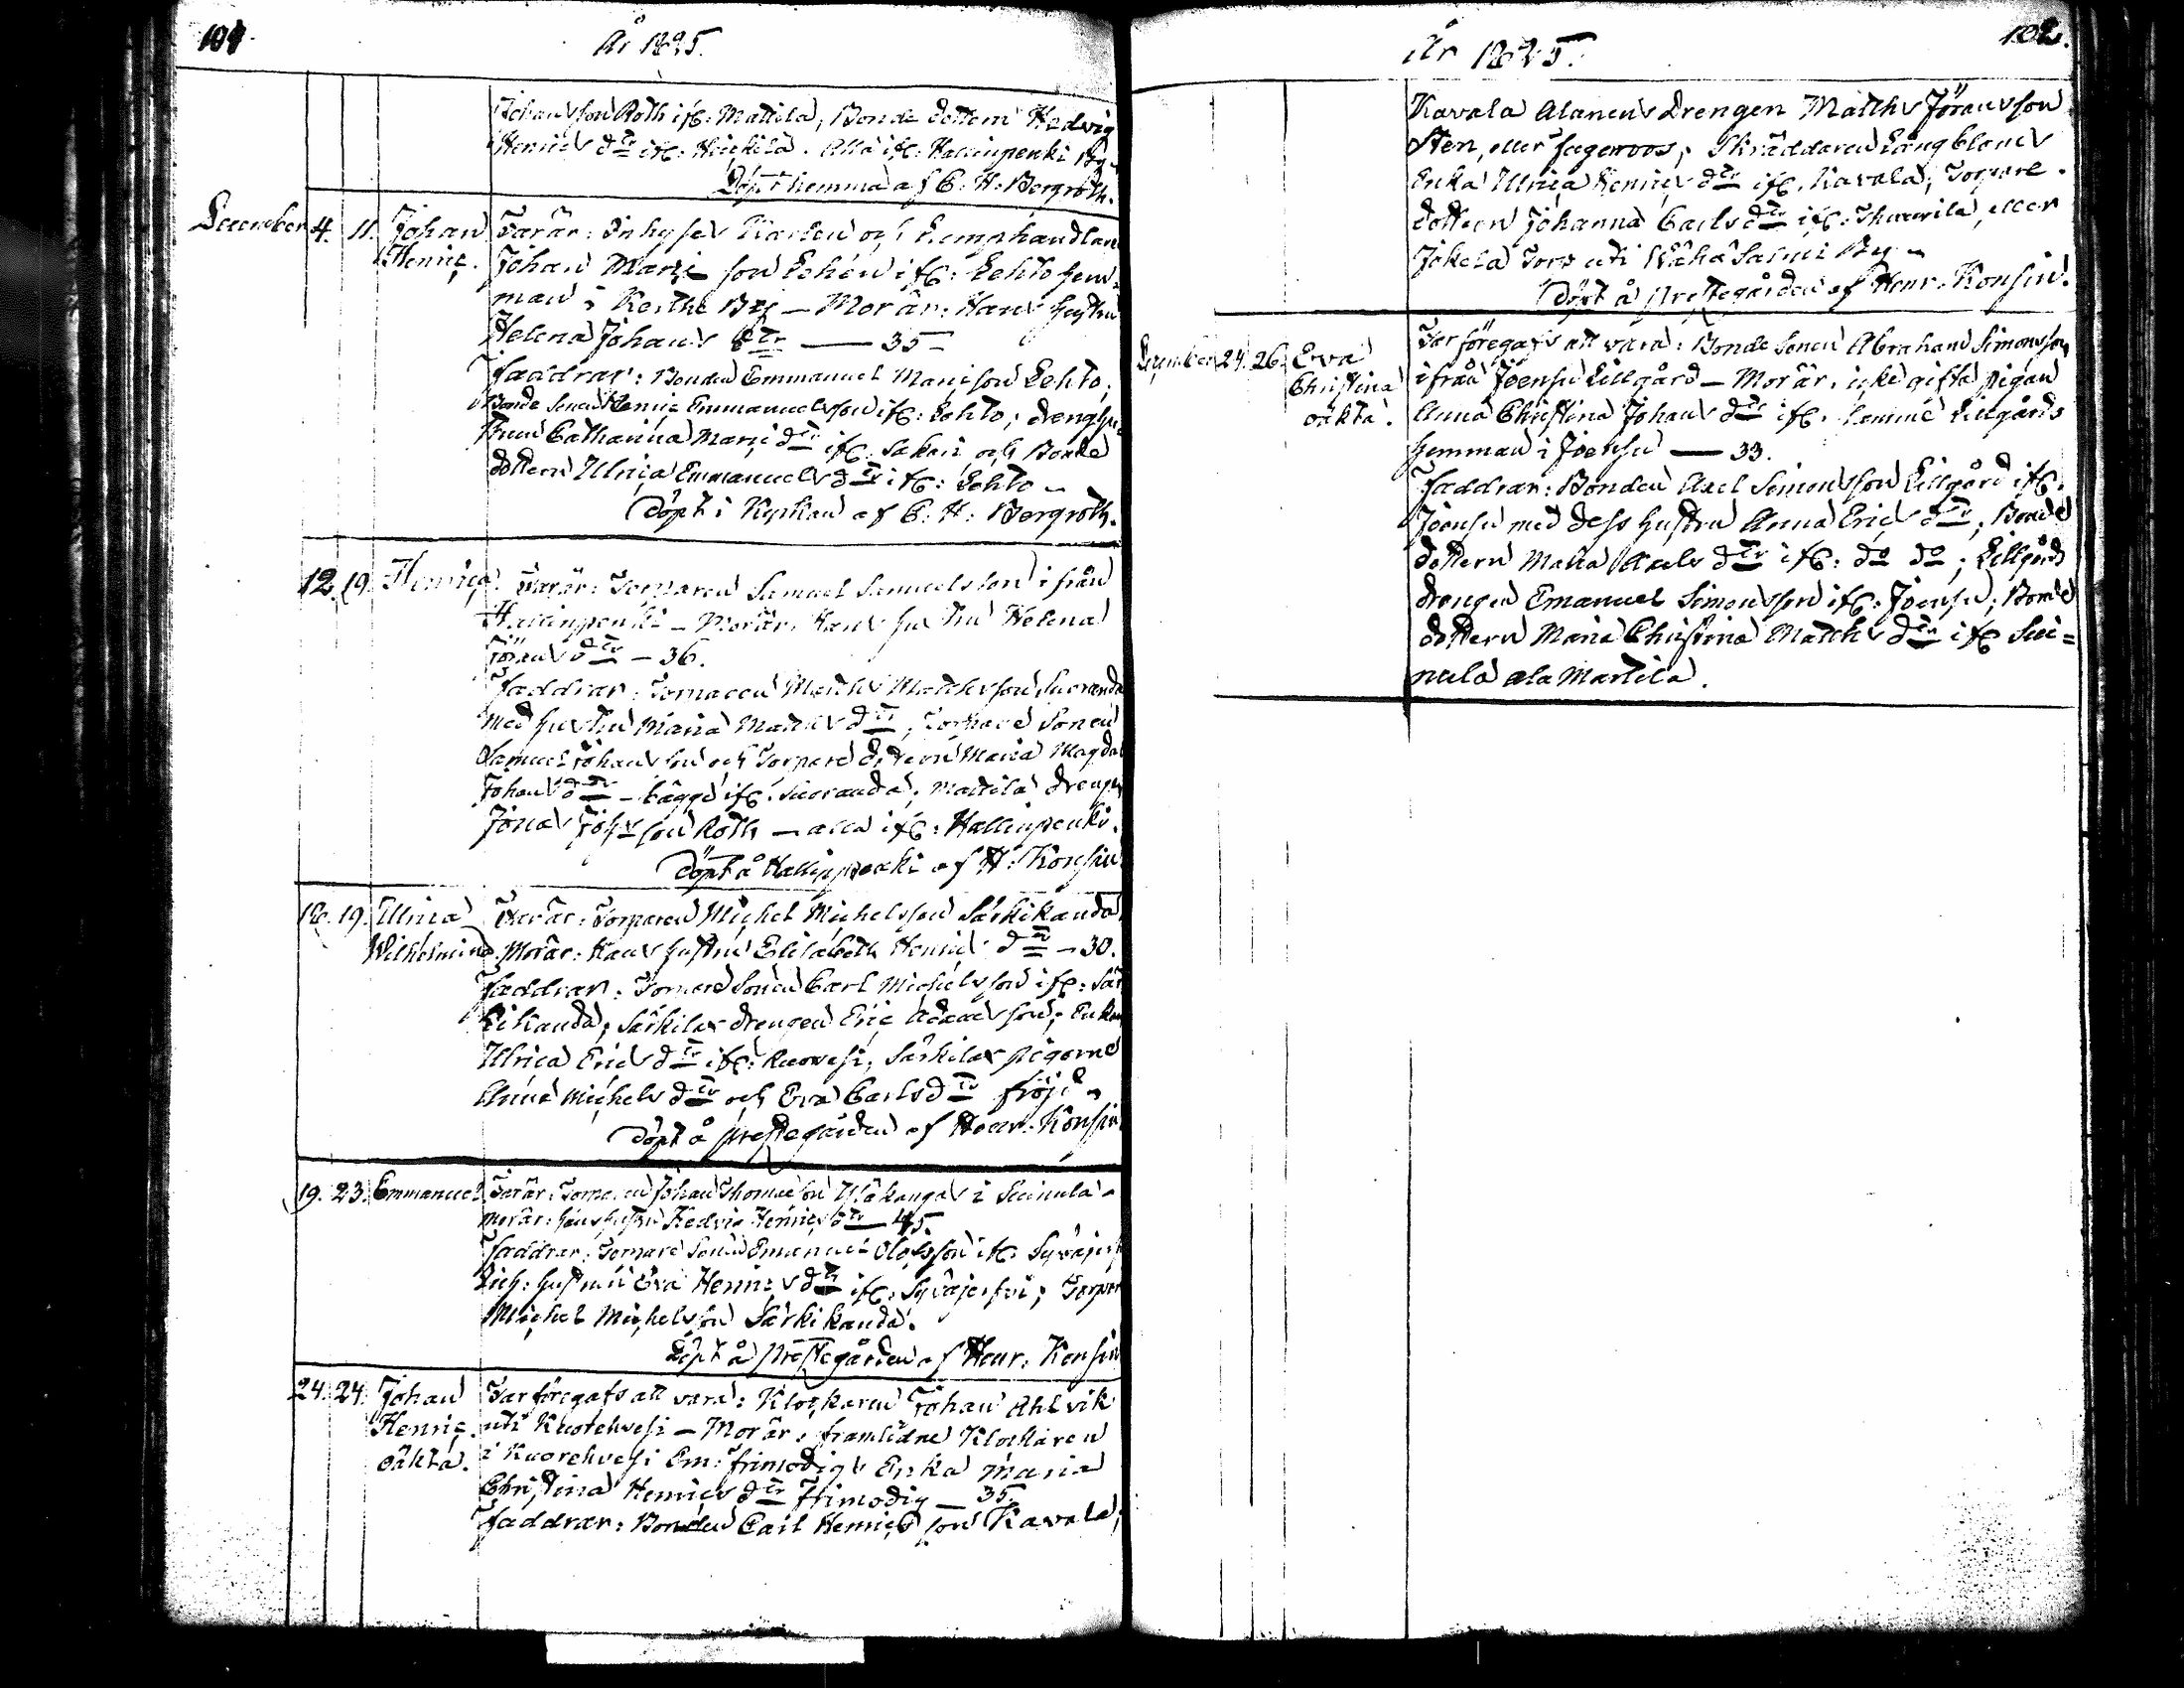 101
År 1825.
Johansson Roth ifr: Mattila, Bonde dottern Hedvig
Henrics dtr ifr: Heickilä. Alla ifr: Hallinpenki By
Döpt hemma af C. H. Bergroth.
December 4. 11. Johan Henric. Far är: Inhyses Karlen och Kramphandlare
Johan Marci son Lehén ifr: Lehto hem-
man i Keithi By — Mor är: Hans hustru
Helena Johans dtr — 35
Faddrar: Bonden Emmanuel Marci son Lehto;
Bonde Sonen Henric Emmanuelsson ifr: Lehto; Dreng hu-
strun Catharina Marci dtr ifr: Sakari och Bonde
dottern Ulrica Emmanuels dtr ifr: Lehto
Döpt i Kyrkan af C. H. Bergroth.
12. 19. Henric. Far är: Torparen Samuel Samuelsson ifrån
Hallinpenki — Mor är: Hans hustru Helena
Jörans dtr — 36.
Faddrar: Torparen Matths Matthsson Suoranda
med hustru Maria Matths dtr; Torpare Sonen
Samuel Johansson och Torpare dottern Maria Magda
Johans dtr — bägge ifr: Suoranda; Mattila drengen
Jonas Johsson Roth — alla ifr: Hallinpenki.
Döpt å Hallinpenki af H: Konsin
18. 19. Ulrica Wilhelmina. Far är: Torparen Michel Michelsson Särkikanda
Mor är: Hans hustru Elisabeth Henrics dtr — 30.
Faddrar: Torpare Sonen Carl Michelsson ifr: Sär
kikanda; Särkilax drengen Eric Adamsson; Enkan
Ulrica Erics dtr ifr: Ruovesi; Särkilax pigorne
Anna Michels dtr och Eva Carls dtr Fröjd
Döpt å prestegården af Henr. Konsin
19. 23. Emmanuel. Far är: Torparen Johan Thomasson Ylökangas i Suinula
Mor är: hans hustru Hedvig Henrics dtr — 45.
Faddrar: Torpare Sonen Emanuel Olofsson ifr: Syväjerf
hustrun Eva Henrics dtr ifr: Syväjerfvi; Torpar
Michel Michelsson Särkikanda.
Döpt å prestegården af Henr. Konsin
24. 24. Johan Henric. oäkta. Far föregafs att vara: Klockaren Johan Ahlvik
uti Kuorehvesi — Mor är: framlidne Klockaren
i Kuorehvesi Em: Frimodigs Enka Maria
Christina Henrics dtr Frimodig — 35.
Faddrar: Bonden Carl Henricsson Kavala;
102.
År 1825.
Kavala Alanens Drengen Matths Jöransson
Sten, eller Fageroos; Skräddaren Långbloms
Enka Ulrica Henrics dtr ifr: Kavala; Torpare
dottern Johanna Carls dtr ifr: eller
Jokela Torp uti Wäha Salmi By
Döpt å prestegården af Henr. Konsin.
December 24. 26. Eva Christina oäkta. Far föregafs att vara: Bonde Sonen Abraham Simonsson
ifrån Joensu Lillgård — Mor är: icke gifta pigan
Anna Christina Johans dtr ifr: samme Lillgårds
hemman i Joensu — 33.
Faddrar: Bonden Axel Simonsson Lillgård ifr:
Joensu med dess hustru Anna Erics dtr; Bonde
dottern Maria Axels dtr ifr: do do; Lillgårds
drengen Emanuel Simonsson ifr: Joensu; Bonde
dottern Maria Christina Matths dtr ifr Sui=
nula ala Mattila.